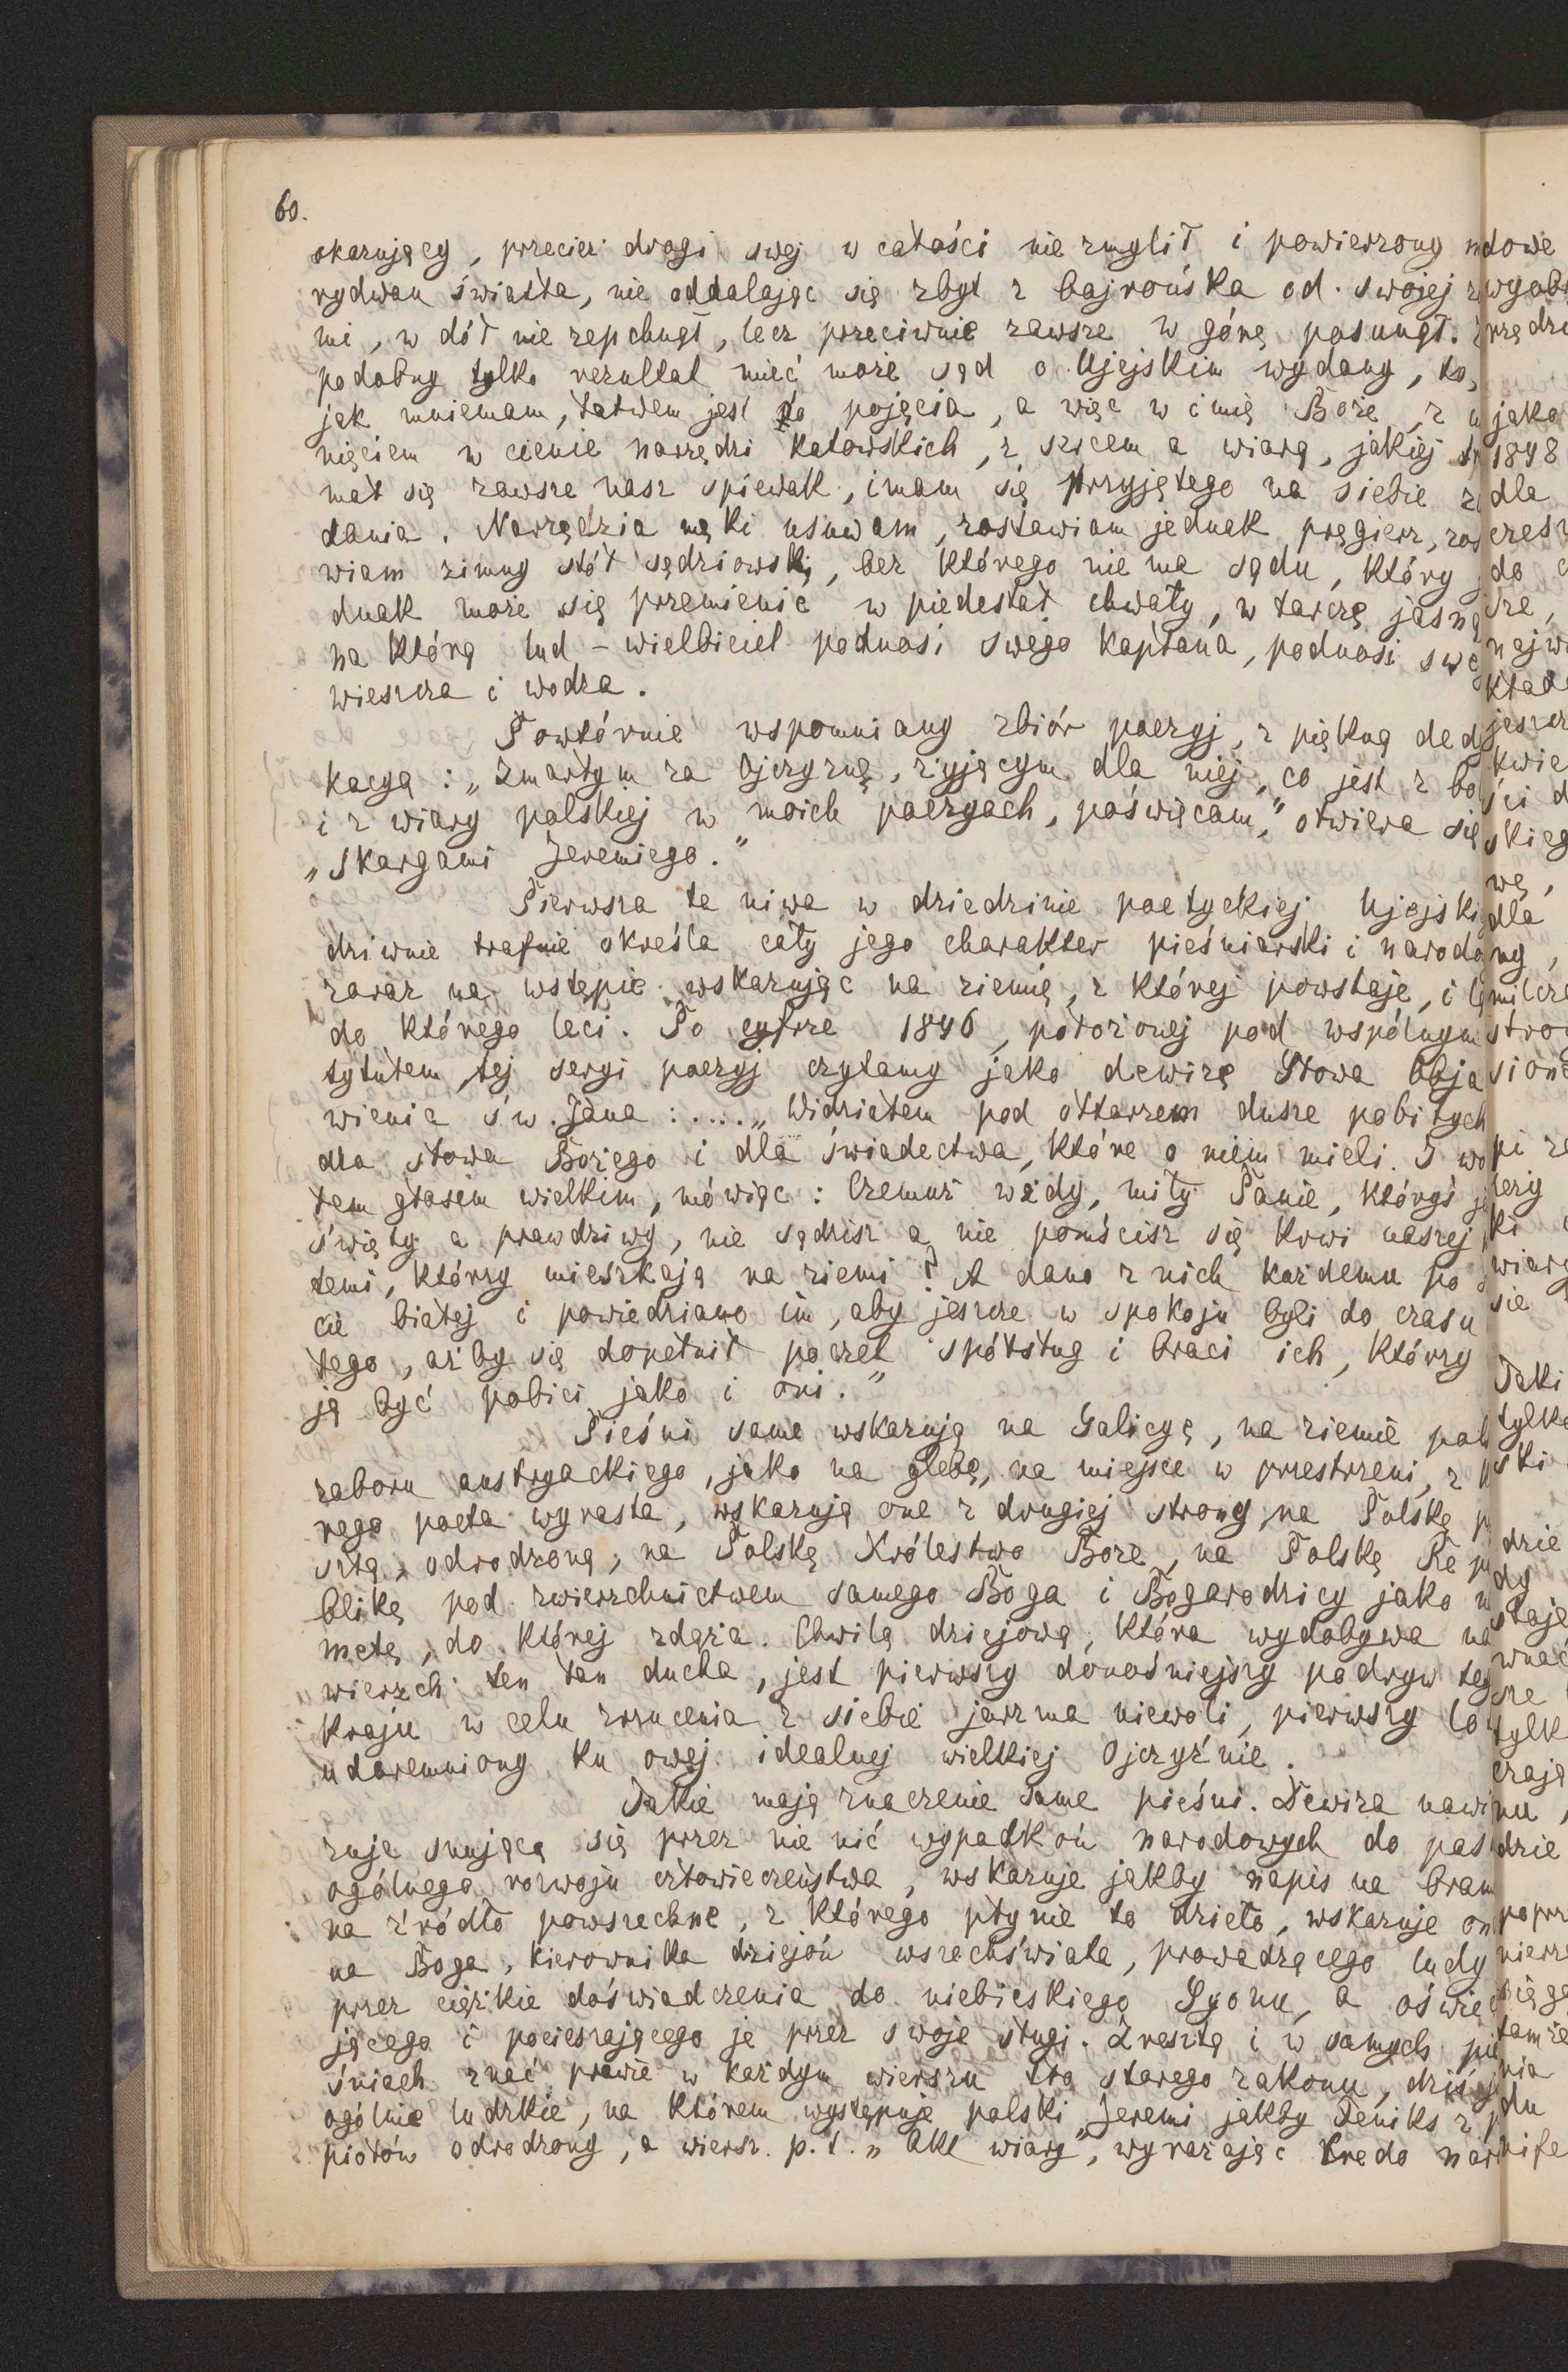 60.
okazujący, przecież drogi swej w całości nie zmylił i powierzony
rydwan światła, nie oddalając się zbyt z bajrońska od swojej
mi, w dół nie zepchnął, lecz przeciwnie zawsze w górę posunął.
podobny tylko rezultat mieć może sąd o Ujejskim wydany, to,
jak mniemam, łatwem jest do pojęcia, a więc w imię Boże, z
nięciem w cienie narzędzi katowskich, z sercem a wiarą, jakiej
mał się zawsze nasz śpiewak, imam się przyjętego na siebie
dania. Narzędzia męki usuwam, zostawiam jednak pręgierz, zos
wiam zimny stół sędziowski, bez którego nie ma sądu, który
dnak może się przemienić w piedestał chwały, w tarczę jasną
na którą lud - wielbiciel podnosi swego kapłana, podnosi swe
wieszcza i wodza.
Powtórnie wspomniany zbiór poezyj, z piękną ded
kacyą: „Zmarłym za Ojczyznę, żyjącym dla niej, co jest z bo
i z wiary polskiej w moich poezyach, poświęcam," otwiera się
„Skargami Jeremiego."
Pierwsza ta niwa w dziedzinie poetyckiej Ujejski
dziwnie trafnie określa cały jego charakter pieśniarski i narodo
zaraz na wstępie wskazując na ziemię, z której powstaje, i
do którego leci. Po cyfrze 1846, położonej pod wspólnym
tytułem tej seryi poezyj czytamy jako dewizę Słowa Obja
wienia św. Jana: ..... „Widziałem pod ołtarzem dusze pobitych
dla słowa Bożego i dla świadectwa, które o niem mieli. I wo
łem głosem wielkim, mówiąc: Czemuż wżdy, miły Panie, któryś
święty a prawdziwy, nie sądzisz a nie pomścisz się krwi naszej
temi, którzy mieszkają na ziemi? A dano z nich każdemu po
cie białej i powiedziano im, aby jeszcze w spokoju byli do czasu
tego, aż by się dopełnił poczet spółsług i braci ich, którzy
ją być pobici jako i oni."
Pieśni same wskazują na Galicyę, na ziemie pol
zaboru austryackiego, jako na glebę, na miejsce w przestrzeni, z
rego poeta wyrasta, wskazują one z drugiej strony na Polskę
szłą, odrodzoną, na Polskę Królestwo Boże, na Polskę Rep
blikę pod zwierzchnictwem samego Boga i Bogarodzicy jako
metę, do której zdąża. Chwilą dziejową, która wydobywa na
wierzch ten tan ducha, jest pierwszy donośniejszy podryw teg
kraju w celu zrzucenia z siebie jarzma niewoli, pierwszy lo
udaremniony ku owej idealnej wielkiej Ojczyźnie.
Takie mają znaczenie same pieśni. Dewiza nawi
zuje snującą się przez nie nić wypadków narodowych do pas
ogólnego rozwoju człowieczeństwa, wskazuje jakby napis na bram
na źródło powszechne, z którego płynie to dzieło, wskazuje on
na Boga, kierownika dziejów wszechświata, prowadzącego ludy
przez ciężkie doświadczenia do niebieskiego Syonu, a oświec
jącego i pocieszającego je przez swoje sługi. Zresztą i w samych pie
śniach znać prawie w każdym wierszu tło starego zakonu, dziś
ogólnie ludzkie, na którem występuje polski „Jeremi jakby Feniks z p
piołów odrodzony, a wiersz p.t. „Akt wiary", wyrażając Credo nar
dowe
wyobr
jako
1848
dla
do
sze,
jeszcz
kwie
ści d
skieg
wę,
dla
ny,
milcze
stro
lezy
ki
wiary
się
Taki
tylko
ski
dzie
dy
staje
wnać
sze
tylk
czają
nu,
dzie
popr
nierz
sięga
tamże
nia
du
nife